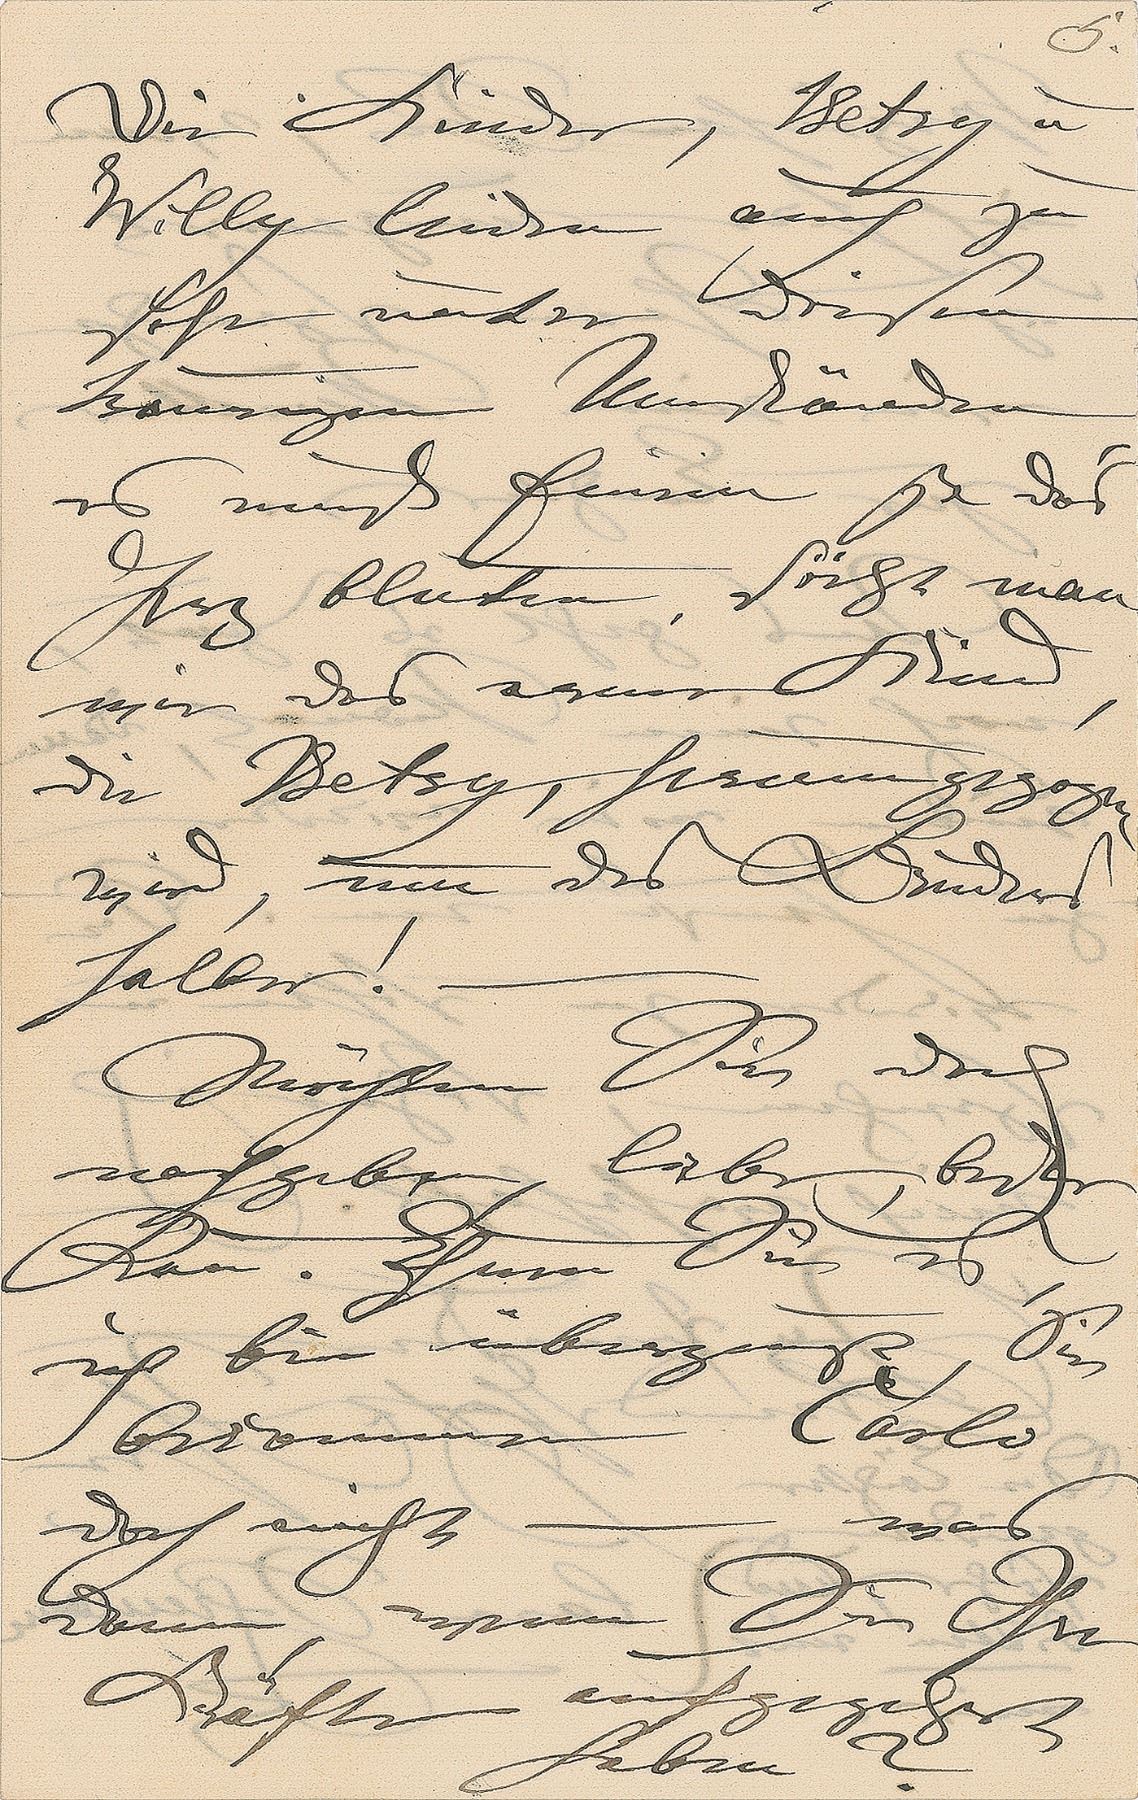 5.
Die Kinder, Betsy u
Willy leiden auch zu
sehr unter diesen
traurigen Umständen
es muß Einem ja das
Herz bluten, sieht man
wie das arme Kind,
die Betsy, herumgezogen
wird, nur des Bruders
halber! —
Möchten Sie doch
nachgeben, liebe, beste
Frau. Thun Sie es,
ich bin überzeugt, Sie
bekommen Carlo
doch nicht — was
dann, wenn Sie Ihre
Kräfte aufgezehrt
haben?